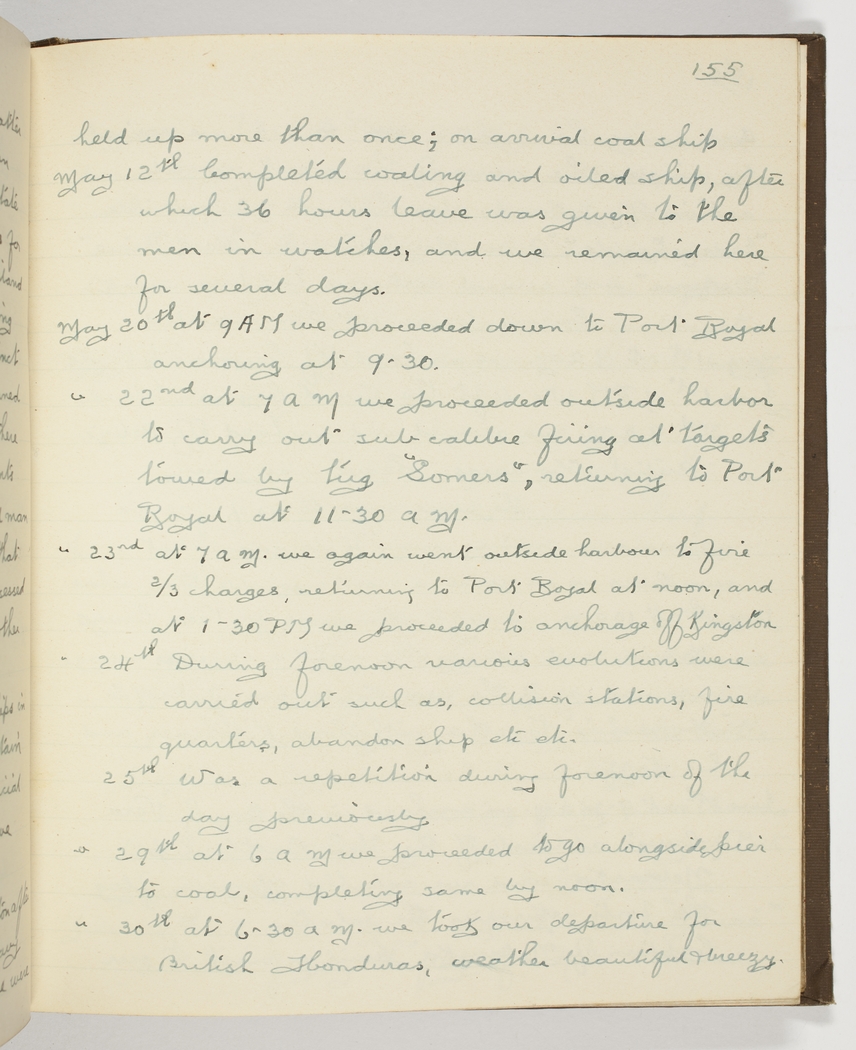 155
held up more than once; on arrival coal ship
May 12th Completed coaling and oiled ship, after
which 36 hours leave was given to the
men in watches, and we remained here
for several days.
May 20th at 9 AM we proceeded down to Port Royal
anchoring at 9-30.
" 22nd at 7 A M we proceeded outside harbor
to carry out sub calibre firing at targets
towed by tug "Somers", returning to Port
Royal at 11-30 a M.
" 23rd at 7 a m. we again went outside harbour to fire
2/3 charges, returning to Port Royal at noon, and
at 1-30 PM we proceeded to anchorage off Kingston
" 24th During forenoon various evolutions were
carried out such as, collision stations, fire
quarters, abandon ship etc etc.
25th Was a repetition during forenoon of the
day previously
" 29th at 6 a m we proceeded to go alongside pier
to coal, completing same by noon.
" 30th at 6-30 a m. we took our departure for
British Honduras, weather beautiful & breezy.